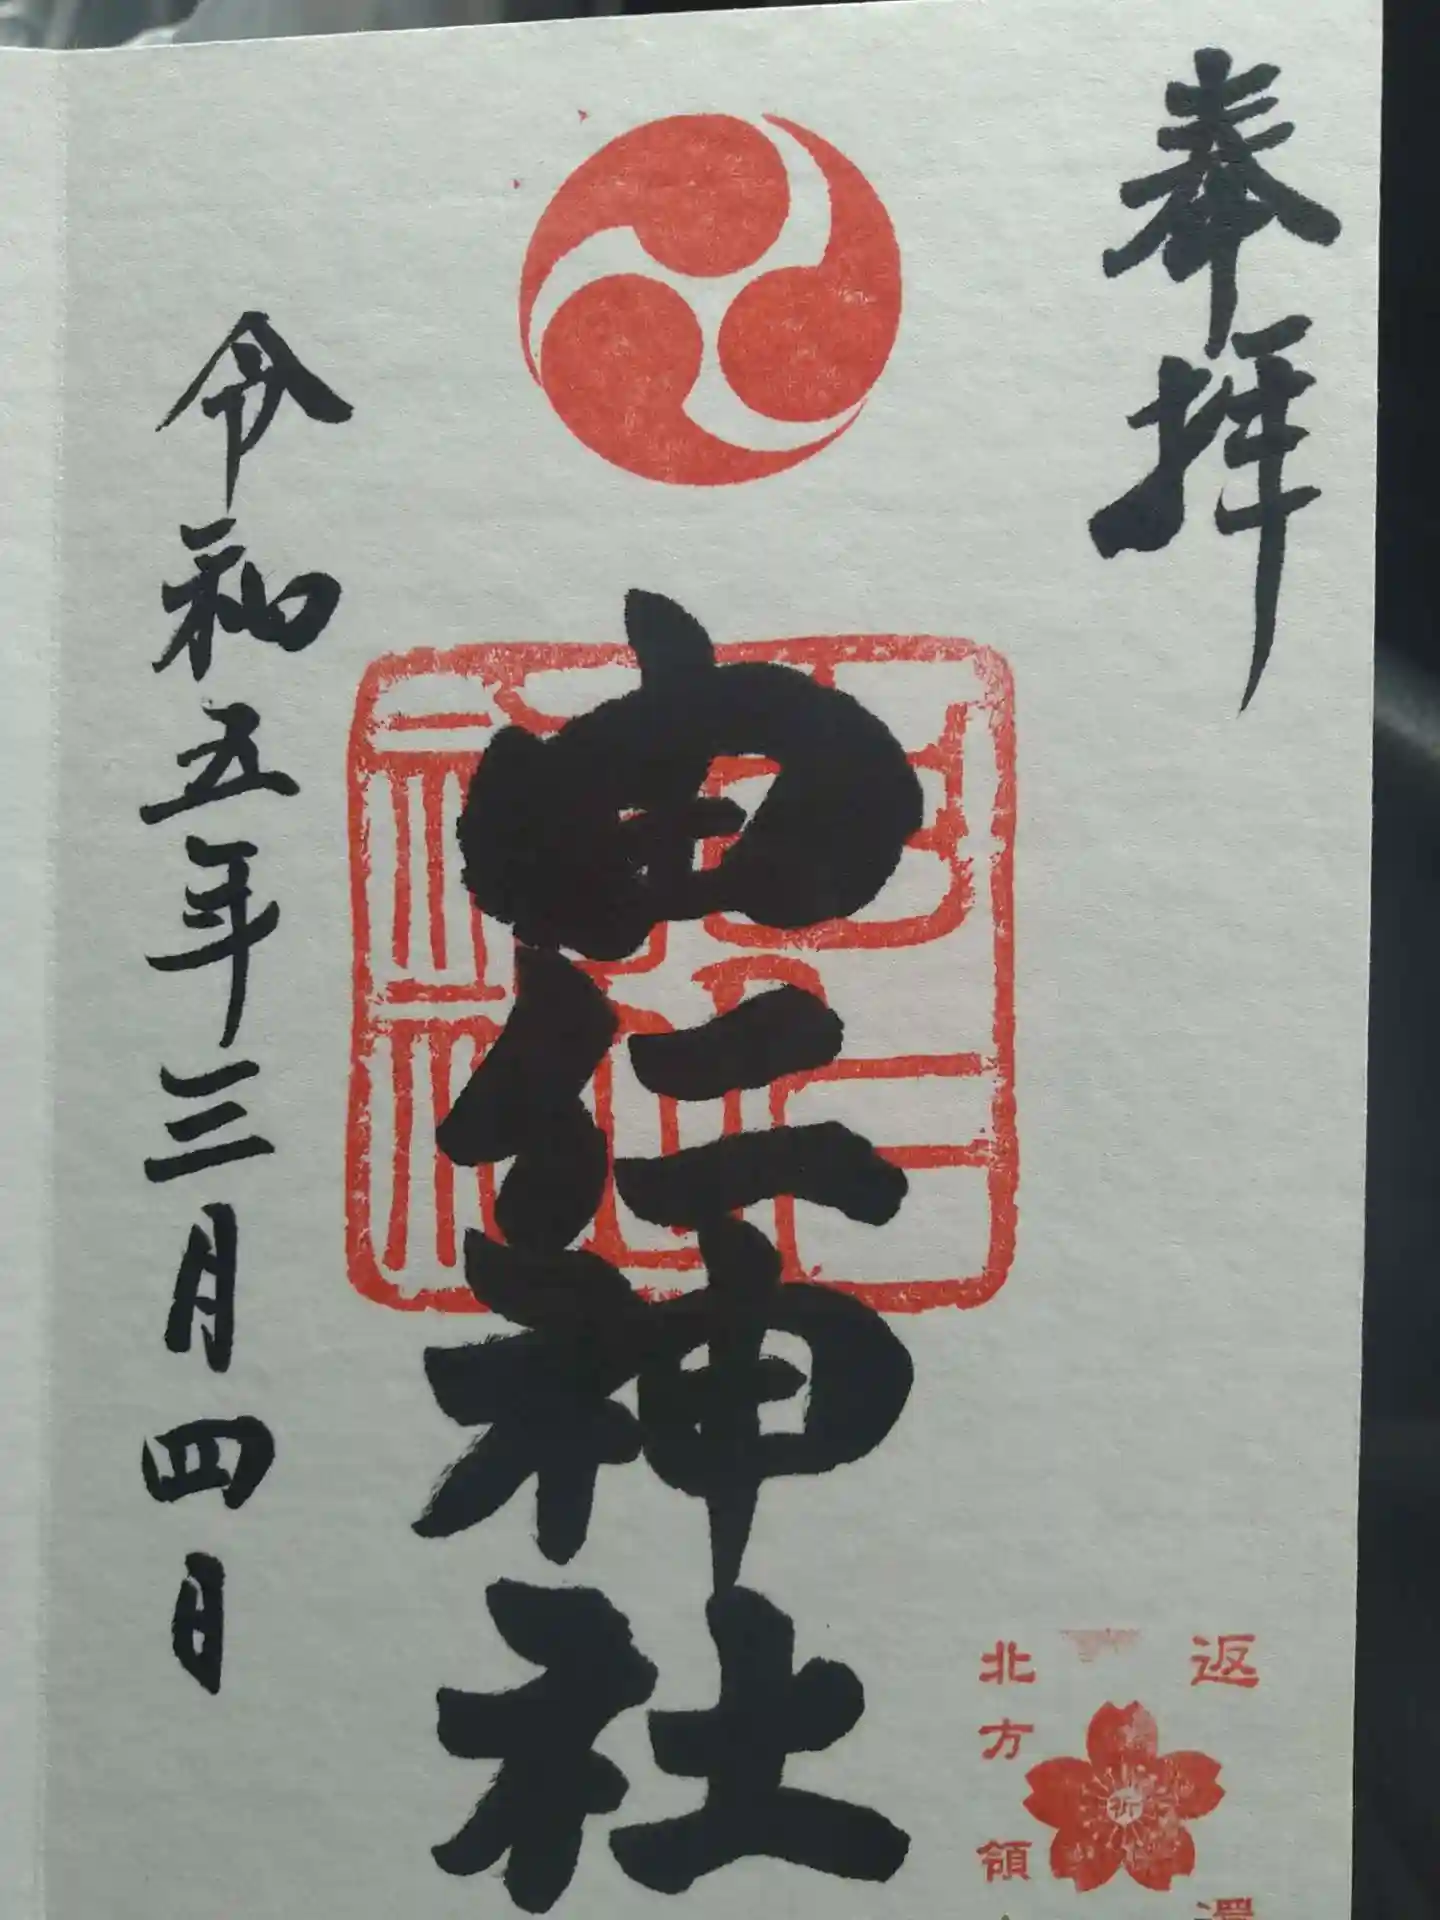 奉拝
返還
祈
北方領
由仁神社
令和五年三月四日